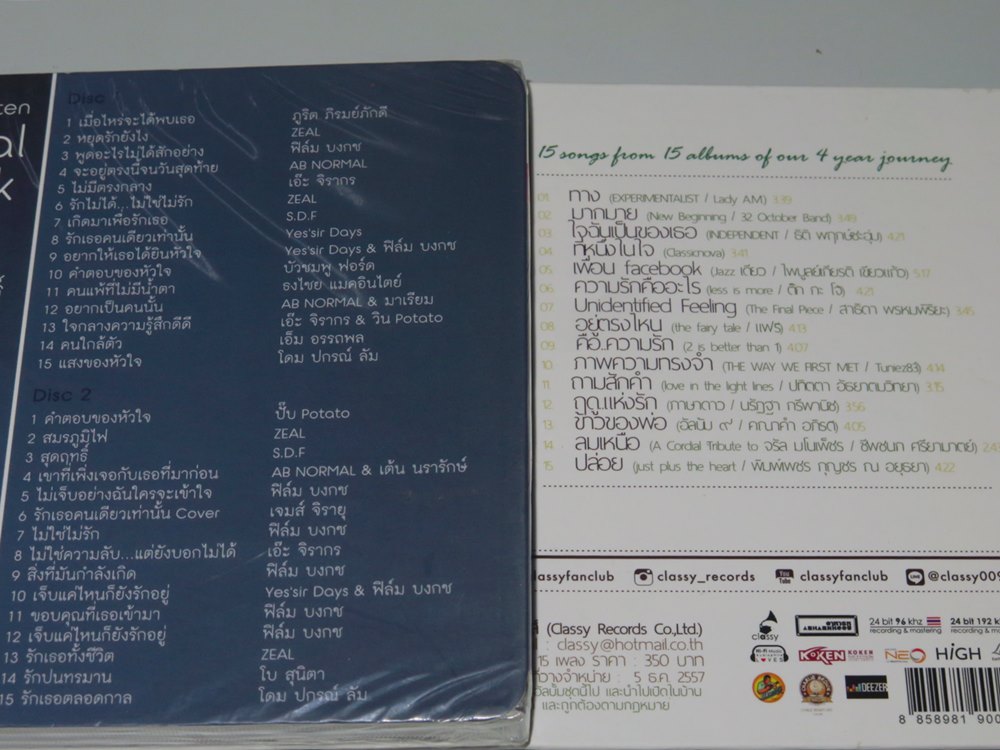 ten
al
k
Disc
1 เมื่อไหร่จะได้พบเธอ ภูริต ภิรมย์ภักดี
2 หยุดรักยังไง ZEAL
3 พูดอะไรไม่ได้สักอย่าง ฟิล์ม บงกช
4 จะอยู่ตรงนี้จนวันสุดท้าย AB NORMAL
5 ไม่มีตรงกลาง เอ๊ะ จิรากร
6 รักไม่ได้...ไม่ใช่ไม่รัก ZEAL
7 เกิดมาเพื่อรักเธอ S.D.F
8 รักเธอคนเดียวเท่านั้น Yes'sir Days
9 อยากให้เธอได้ยินหัวใจ Yes'sir Days & ฟิล์ม บงกช
10 คำตอบของหัวใจ บัวชมพู ฟอร์ด
11 คนแพ้ที่ไม่มีน้ำตา ธงไชย แมคอินไตย์
12 อยากเป็นคนนั้น AB NORMAL & มาเรียม
13 ใจกลางความรู้สึกดีดี เอ๊ะ จิรากร & วิน Potato
14 คนใกล้ตัว เอ็ม อรรถพล
15 แสงของหัวใจ โดม ปกรณ์ ลัม
Disc 2
1 คำตอบของหัวใจ ปั๊บ Potato
2 สมรภูมิไฟ ZEAL
3 สุดฤทธิ์ S.D.F
4 เขาที่เพิ่งเจอกับเธอที่มาก่อน AB NORMAL & เต้น นรารักษ์
5 ไม่เจ็บอย่างฉันใครจะเข้าใจ ฟิล์ม บงกช
6 รักเธอคนเดียวเท่านั้น Cover เจมส์ จิรายุ
7 ไม่ใช่ไม่รัก ฟิล์ม บงกช
8 ไม่ใช่ความลับ...แต่ยังบอกไม่ได้ เอ๊ะ จิรากร
9 สิ่งที่มันกำลังเกิด ฟิล์ม บงกช
10 เจ็บแค่ไหนก็ยังรักอยู่ Yes'sir Days & ฟิล์ม บงกช
11 ขอบคุณที่เธอเข้ามา ฟิล์ม บงกช
12 เจ็บแค่ไหนก็ยังรักอยู่ ฟิล์ม บงกช
13 รักเธอทั้งชีวิต ZEAL
14 รักปนทรมาน โบ สุนิตา
15 รักเธอตลอดกาล โดม ปกรณ์ ลัม
15 songs from 15 albums of our 4 year journey
01. ทาง (EXPERIMENTALIST / Lady A.M.) 3.39
02. มากมาย (New Beginning / 32 October Band) 3.49
03. ใจฉันเป็นของเธอ (INDEPENDENT / ธิติ พฤกษ์ชะอุ่ม) 4.21
04. ที่หนึ่งในใจ (Classicnova) 3.41
05. เพื่อน facebook (Jazz เดียว / ไพบูลย์เกียรติ เขียวแก้ว) 5.17
06. ความรักคืออะไร (less is more / ติ๊ก กะ โจ) 4.21
07. Unidentified Feeling (The Final Piece / สาธิดา พรหมพิริยะ) 3.45
08. อยู่ตรงไหน (the fairy tale / แพรี) 4.13
09. คือ..ความรัก (2 is better than 1) 4.07
10. ภาพความทรงจำ (THE WAY WE FIRST MET / Tuniez83) 4.14
11. ถามสักคำ (love in the light lines / ปทิตตา อัธยาตมวิทยา) 3.15
12. ฤดูแห่งรัก (ภาษาดาว / นรัฏฐา ภรีพานิช) 3.56
13. ข้าวของพ่อ (อัลบัม ๙ / คณาคำ อภิรดี) 4.05
14. ลมเหนือ (A Cordial Tribute to จรัล มโนเพ็ชร / ชีพชนก ศรียามาตย์) 2.4
15. ปล่อย (just plus the heart / พิมพ์เพชร กุญชร ณ อยุธยา) 4.22
lassyfanclub classy_records You Tube classyfanclub LINE @classy009
(Classy Records Co.,Ltd.)
: classy@hotmail.co.th
15 เพลง ราคา : 350 บาท
ที่วางจำหน่าย : 5 ธ.ค. 2557
อัลบั้มชุดนี้ไป และนำไปเปิดในบ้าน
และถูกต้องตามกฎหมาย
classy 24 bit 96 khz recording & mastering 24 bit 192 k recording & mas
Hi-Fi Music LOVES KOKEN KOKEN NEO HIGH
DEEZER
8 858981 900